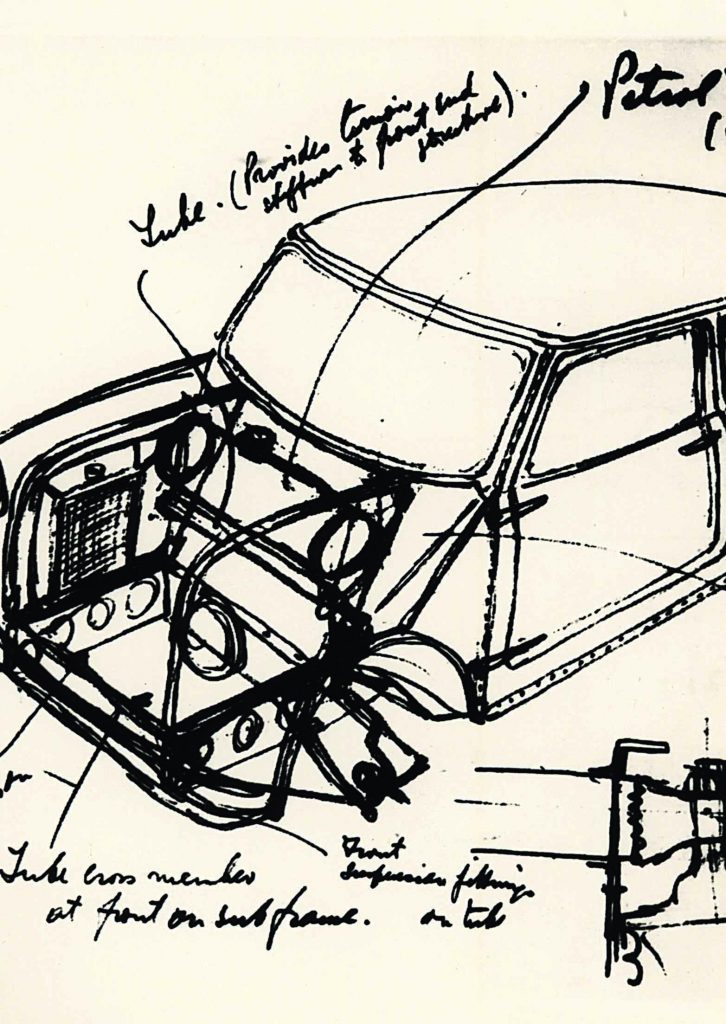 Petrol
(
Tube. (Provides torsion
stiffness to front end
structure).
on
Tube cross member
at front on subframe.
Front
suspension fittings
on tub
3